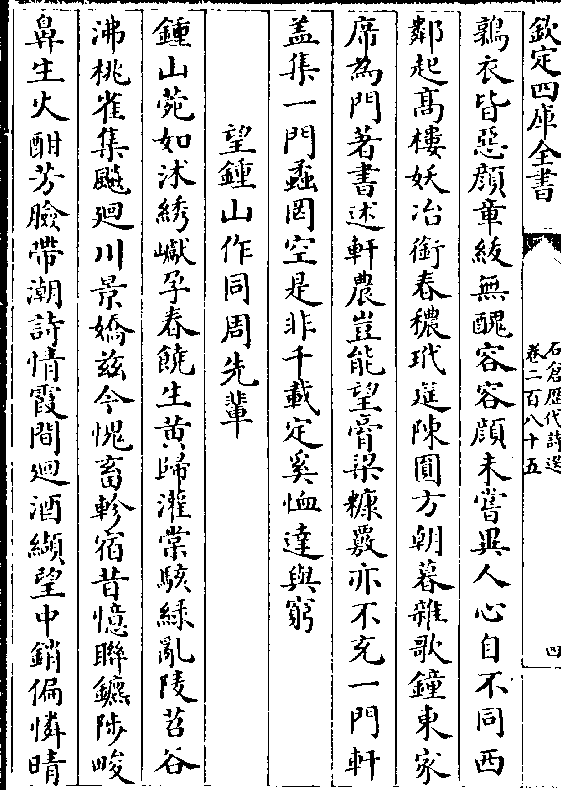 欽定四庫全書
石倉歷代詩選
卷二百八十五
四
鶉衣皆惡顔章紱無醜容容顔未嘗異人心自不同西
鄰起髙樓妖冶銜春穠玳筵陳圓方朝暮雜歌鐘東家
席為門著書述軒農豈能望膏梁糠覈亦不充一門軒
盖集一門蛛罔空是非千載定奚恤達與窮
望鍾山作同周先輩
鍾山菀如沭綉巘孕春饒生黄歸灌棠駭緑亂陵苕谷
沸桃雀集颷廻川景嬌兹今愧畜軫宿昔憶聯鑣陟峻
鼻生火酣芳臉帶潮詩情霞間廻酒纈望中銷偏憐晴